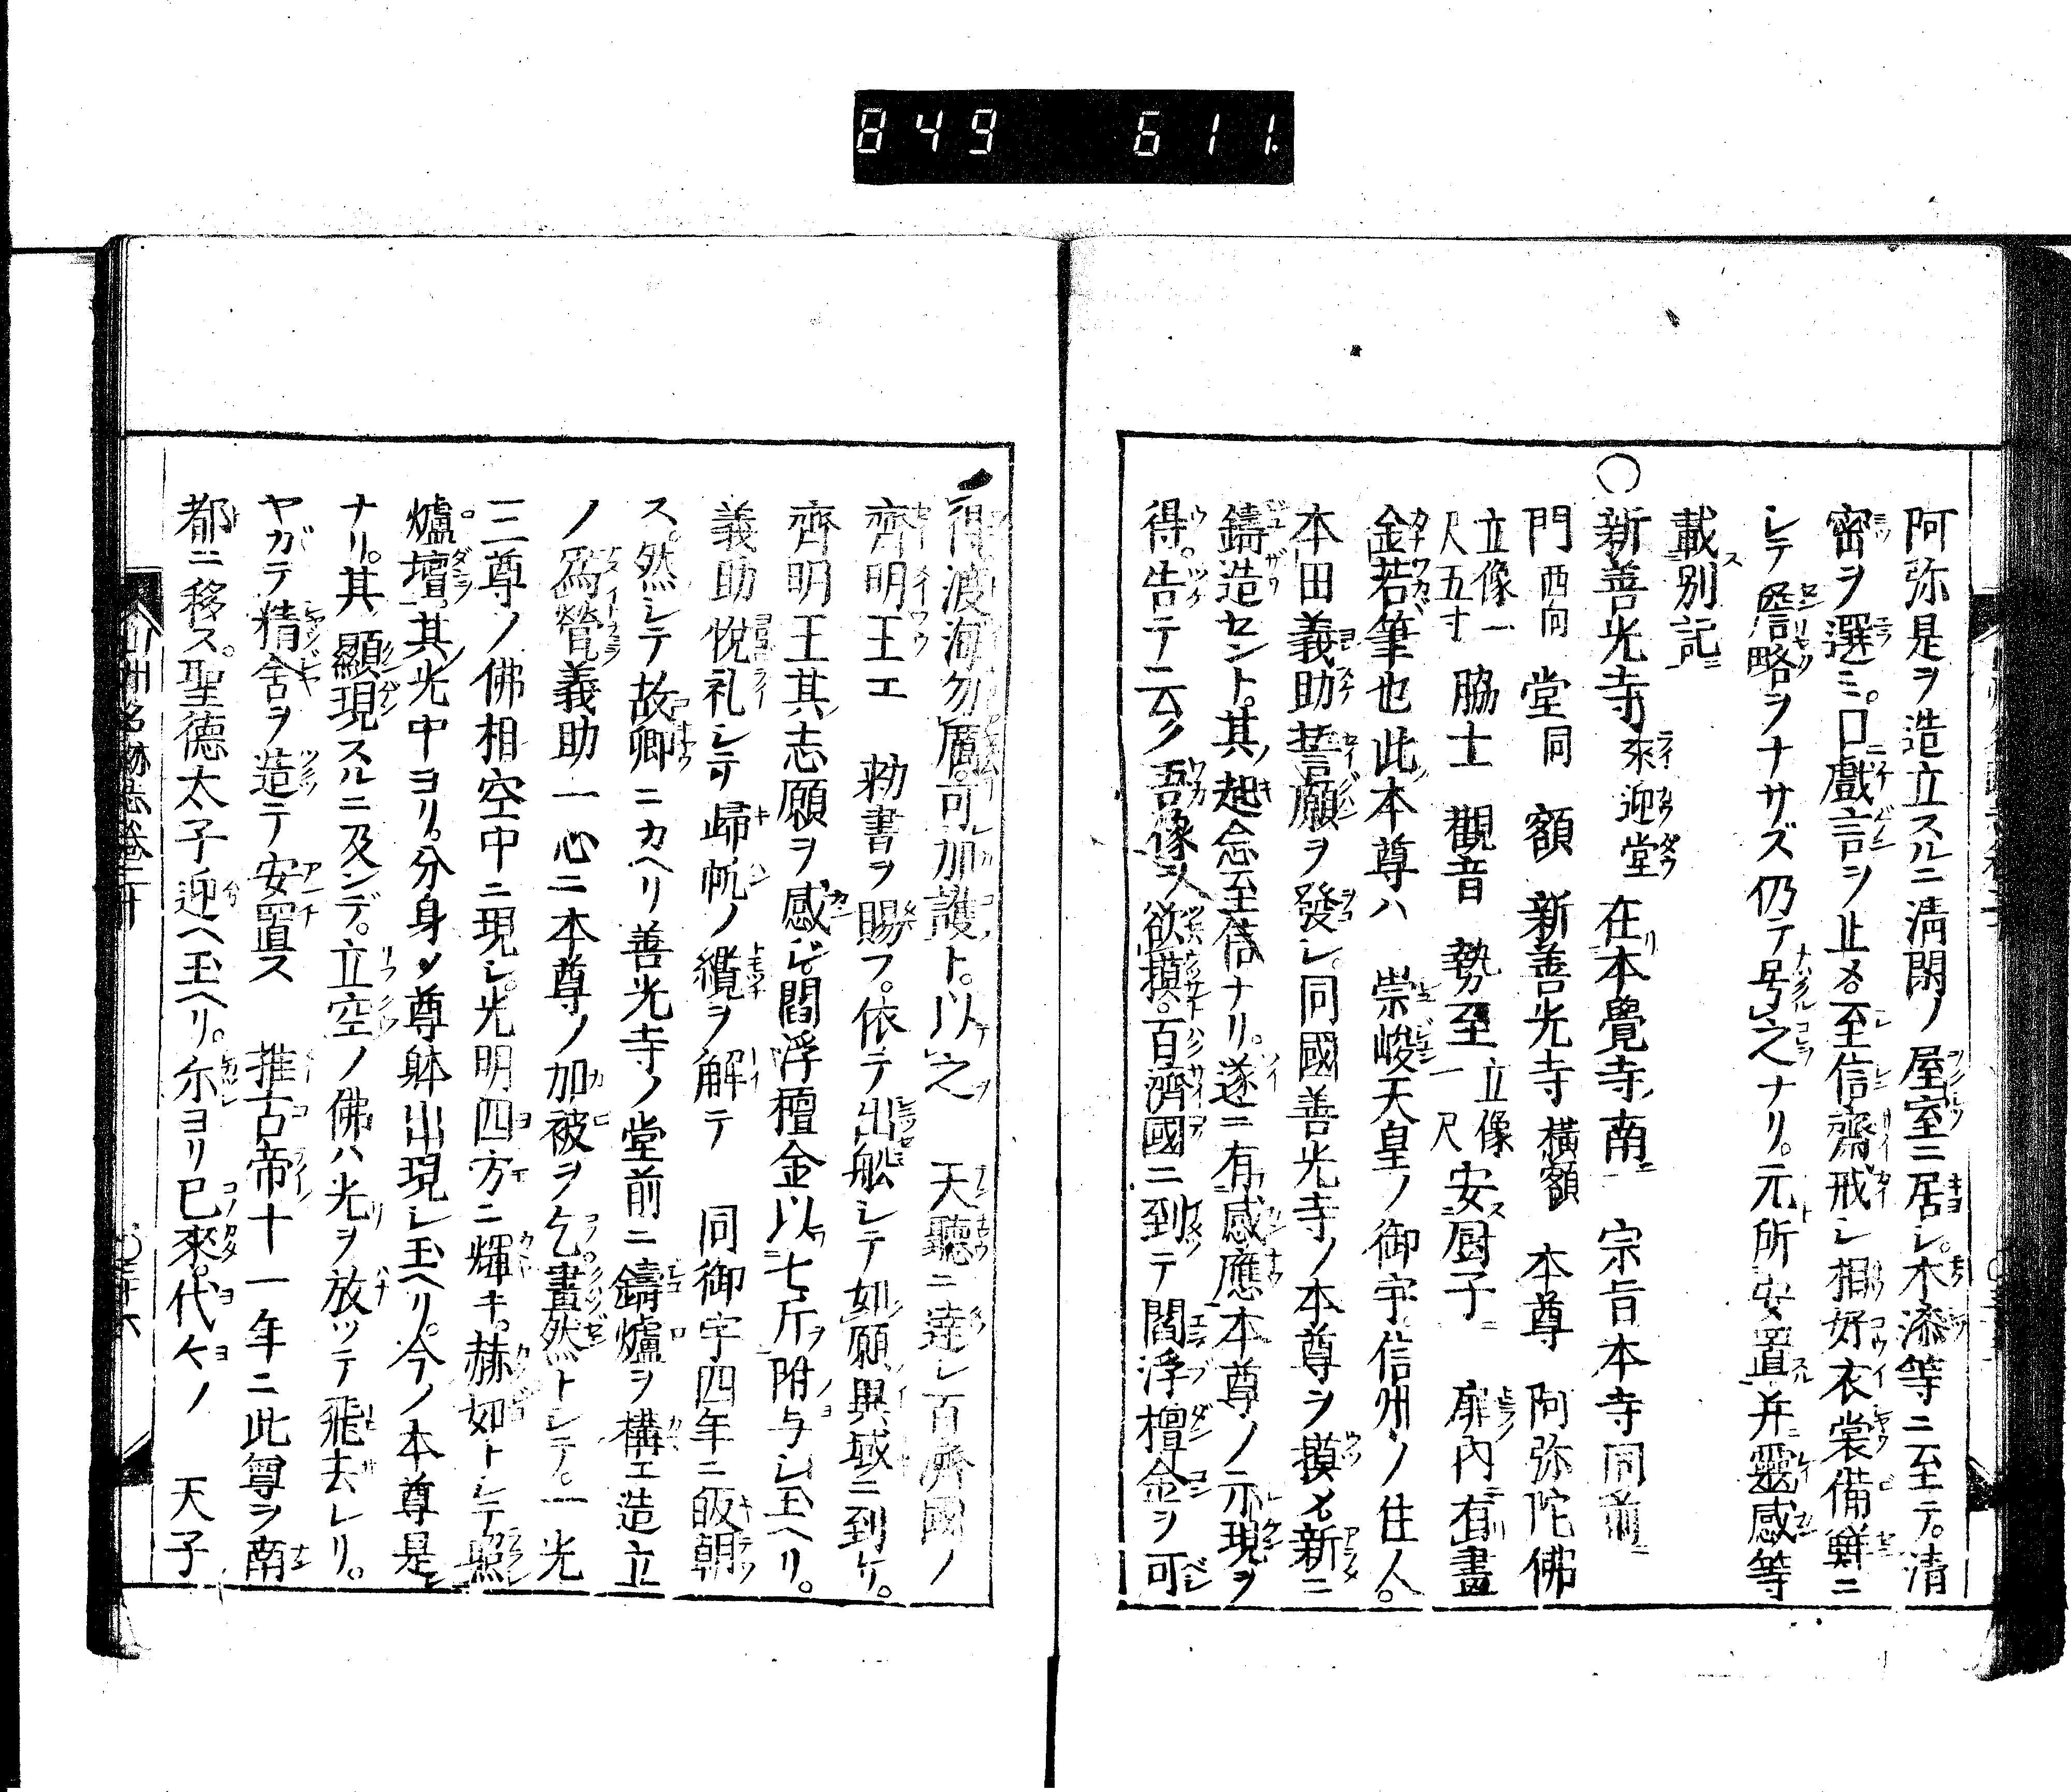 849 611.
阿弥是ヲ造立スルニ清閑ノ屋室ニ居シ。木漆等ニ至テ。清
密ヲ選ミ。口戯言ヲ止メ。至信齋戒シ相好衣裳備鮮ニ
シテ麁略ヲナサズ仍テ号之ナリ。元所安置并靈感等
載別記
○新善光寺 來迎堂 在本覺寺南 宗旨本寺同前
門 西向 堂 同 額 新善光寺 横額 本尊 阿弥陀佛
立像一尺五寸 脇士 觀音 勢至 立像一尺 安厨子 扉内有畫
金若筆也此本尊ハ 崇峻天皇ノ御宇信州ノ住人。
本田義助誓願ヲ發シ。同國善光寺ノ本尊ヲ摸メ新ニ
鑄造セント。其起念至信ナリ。遂ニ有感應本尊ノ示現ヲ
得。告テ云ク吾像ヲ欲摸。百濟國ニ到テ閻浮檀金ヲ可
得渡海勿厲可加護ト。以之 天聽ニ達シ百濟國ノ
齊明王エ 勅書ヲ賜フ。依テ出舩シテ如願與域ニ到ケ。
齊明王其志願ヲ感ジ閻浮檀金以七斤附与シ玉ヘリ。
義助悅礼シテ歸帆ノ纜ヲ解テ 同御宇四年ニ皈朝
ス。然シテ故卿ニカヘリ善光寺ノ堂前ニ鑄爐ヲ構エ造立
ノ爲營義助一心ニ本尊ノ加被ヲ乞。晝然トシテ。一光
三尊ノ佛相空中ニ現シ。光明四方ニ輝キ。赫如トシテ照
爐壇。其光中ヨリ。分身ノ尊躰出現シ玉ヘリ。今ノ本尊是
ナリ。其顯現スルニ及ンデ。立空ノ佛ハ光ヲ放ッテ飛去レリ。
ヤガテ精舎ヲ造テ安置ス 推古帝十一年ニ此尊ヲ南
都ニ移ス。聖德太子迎ヘ玉ヘリ。尓ヨリ已來。代々ノ 天子
山州名跡志卷二十